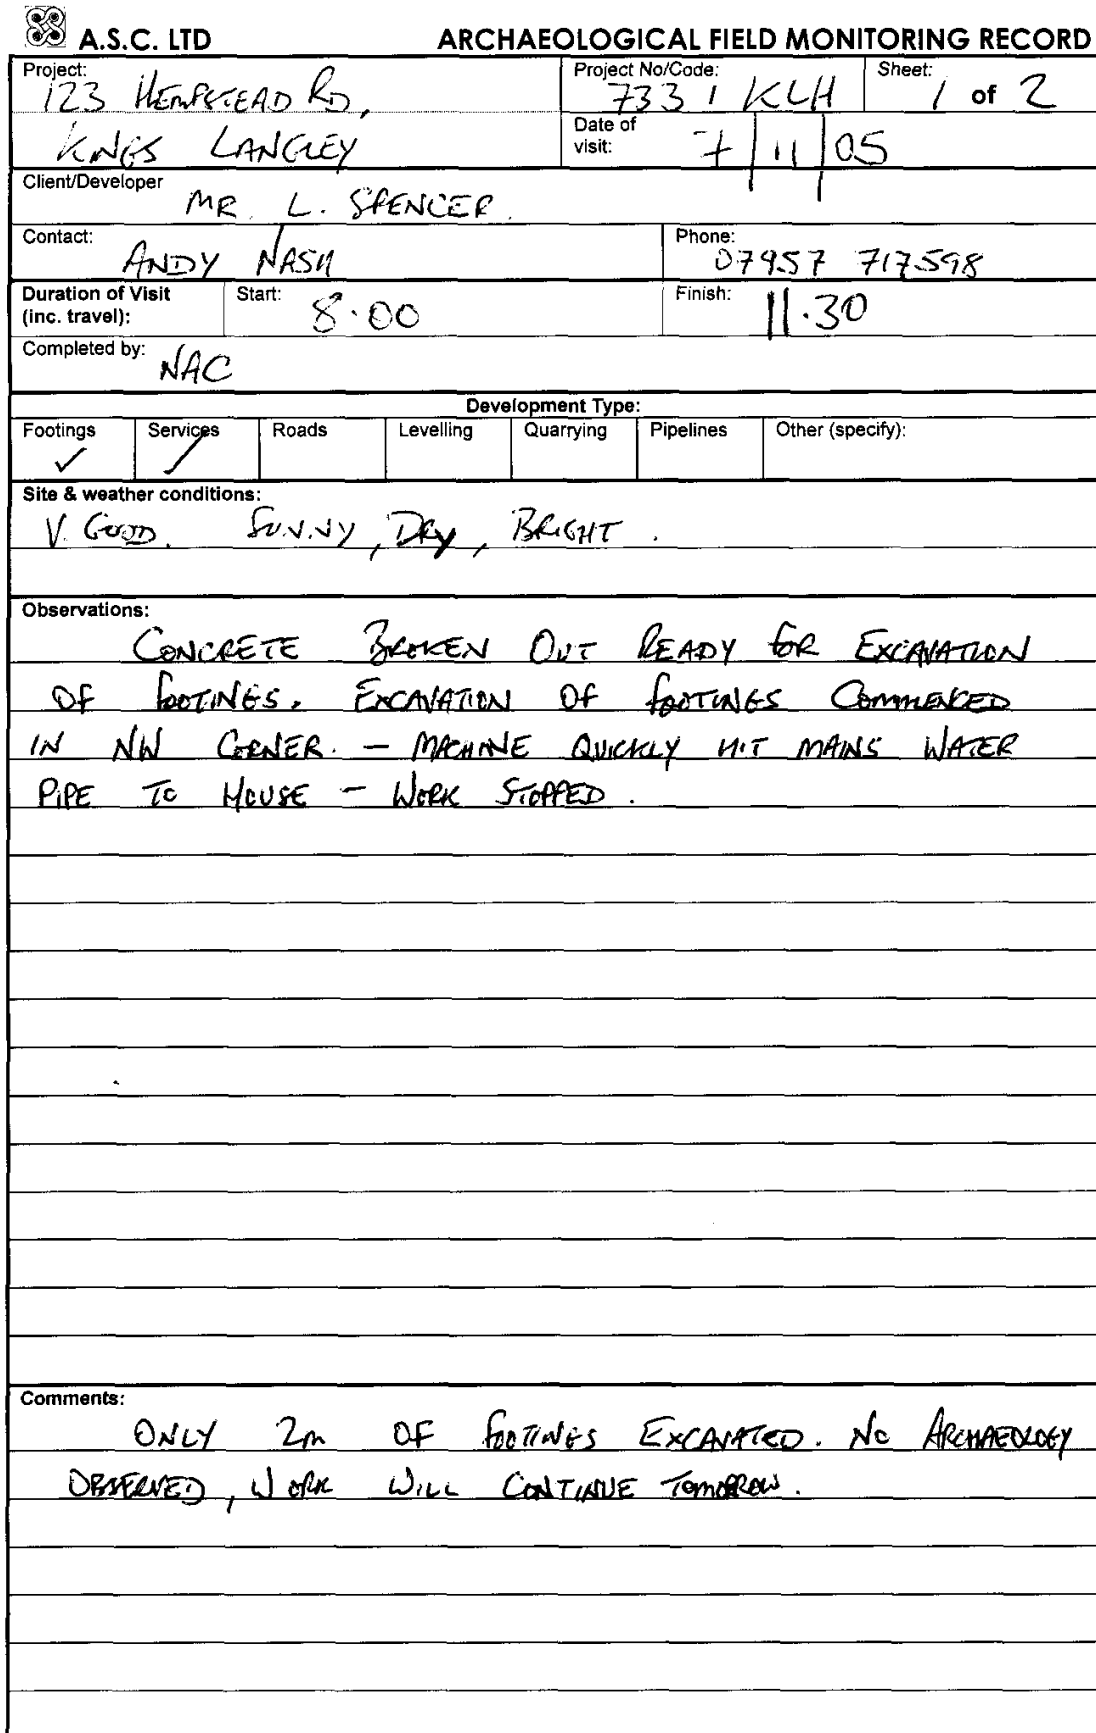 A.S.C. LTD ARCHAEOLOGICAL FIELD MONITORING RECORD
Project: 123 HEMPSTEAD RD,
KINGS LANGLEY
Project No/Code: 733 / KLH
Sheet: 1 of 2
Date of visit: 7/11/05
Client/Developer MR. L. SPENCER.
Contact: ANDY NASH
Phone: 07957 717598
Duration of Visit (inc. travel):
Start: 8.00
Finish: 11.30
Completed by: NAC
Development Type:
Footings ✓ Services ✓ Roads Levelling Quarrying Pipelines Other (specify):
Site & weather conditions:
V. GOOD. SUNNY, DRY, BRIGHT.
Observations:
CONCRETE BROKEN OUT READY FOR EXCAVATION
OF FOOTINGS. EXCAVATION OF FOOTINGS COMMENCED
IN NW CORNER. – MACHINE QUICKLY HIT MAINS WATER
PIPE TO HOUSE – WORK STOPPED.
Comments:
ONLY 2m OF FOOTINGS EXCAVATED. NO ARCHAEOLOGY
OBSERVED, WORK WILL CONTINUE TOMORROW.